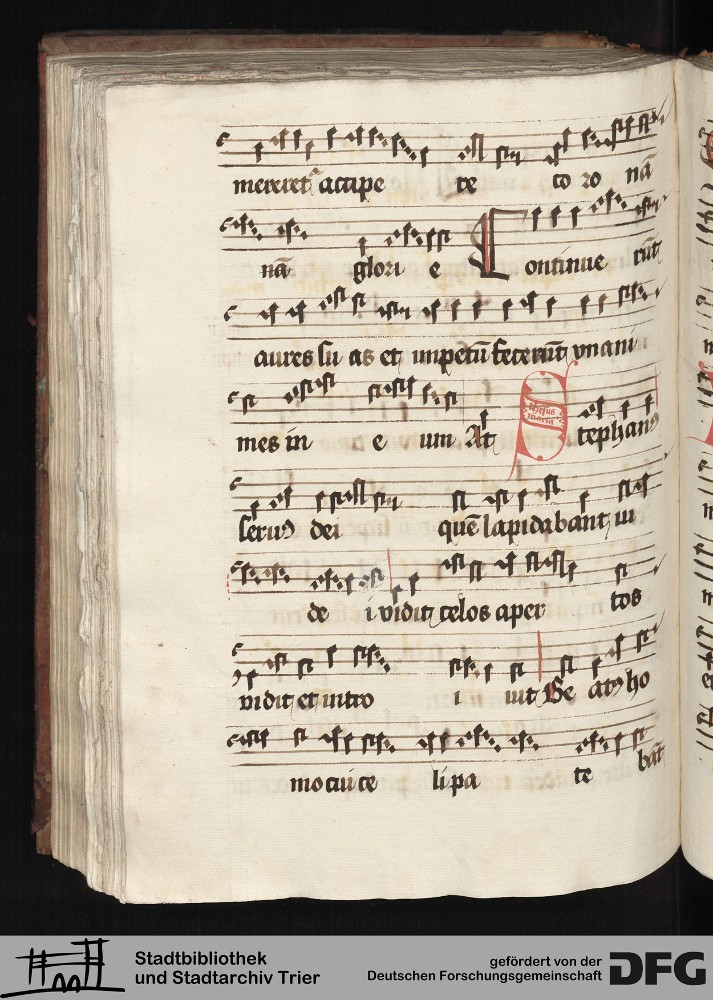 mereret² accipe te co ro nā
nā glori e Continue rūt
aures su as et impetū fecerūt vnani
mes in e um At Stephanꝯ
ihesus
maria
seruꝯ dei quē lapidabant iu
de i vidit celos aper tos
vidit et intro i uit Be atꝯ ho
mo cui ce li pa te bāt
Stadtbibliothek
und Stadtarchiv Trier
gefördert von der
Deutschen Forschungsgemeinschaft
DFG